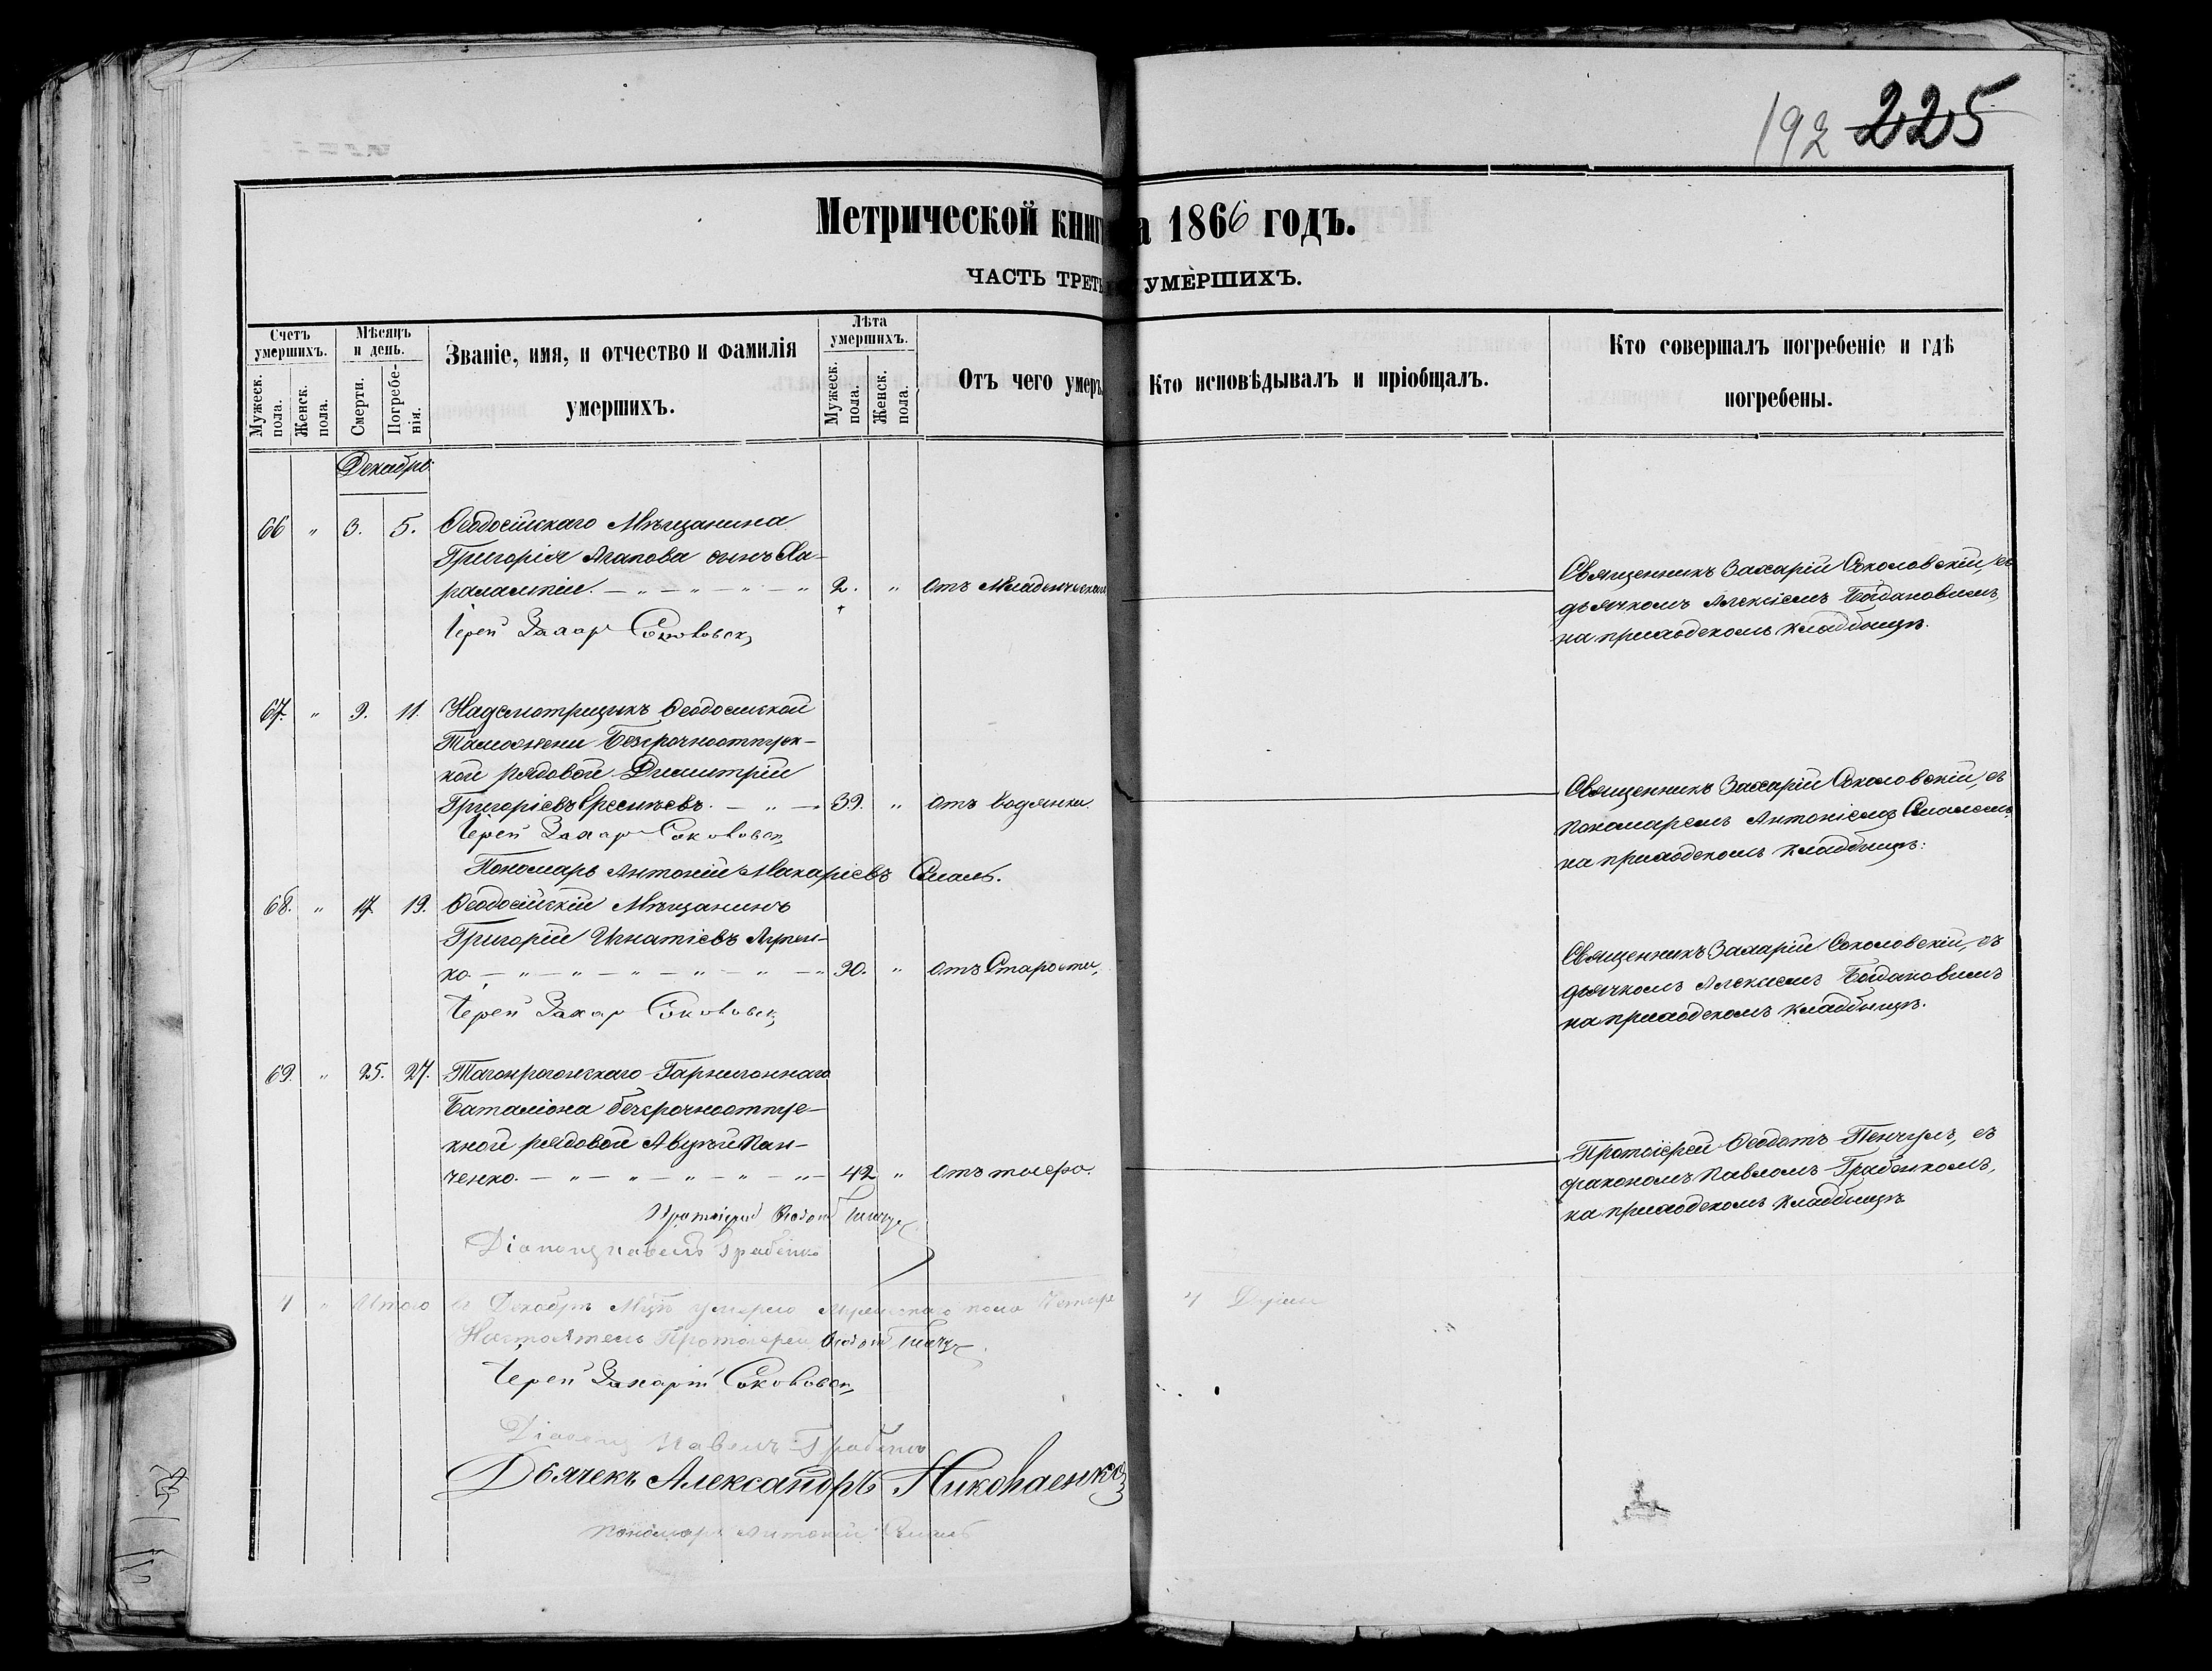 192 225
Метрической книги на 1866 годъ.
ЧАСТЬ ТРЕТЬЯ УМЕРШИХЪ.
Счетъ умершихъ.
Мужеск. пола.
Женск. пола.
Мѣсяцъ и день.
Смерти.
Погребенія.
Званіе, имя, и отчество и фамилія умершихъ.
Лѣта умершихъ.
Мужеск. пола.
Женск. пола.
Отъ чего умеръ.
Кто исповѣдывалъ и пріобщалъ.
Кто совершалъ погребеніе и гдѣ погребены.
Декабрь
66 " 3. 5. Ѳеодосійскаго Мѣщанина
Григорія Агапова сынъ Ха-
ралампій. — " — " — " — " 2. " отъ Младенческой
Іерей Захар Соколовск
Священникъ Захарій Соколовскій, съ
дьячкомъ Алексіемъ Богдановымъ,
на приходскомъ кладбищѣ.
67. " 9. 11. Надсмотрщикъ Ѳеодосійской
Таможни Безсрочноотпуск-
ной рядовой Димитрій
Григоріевъ — " — 39. " отъ Водянки.
Іерей Захар Соколовск
Пономарь Антоній Макаріевъ
Священникъ Захарій Соколовскій, съ
пономаремъ Антоніемъ
на приходскомъ кладбищѣ.
68. " 17. 19. Ѳеодосійскій Мѣщанинъ
Григорій Игнатіевъ
ко. — " — " — " — " — " — " 90. " отъ Старости,
Іерей Захар Соколовск
Священникъ Захарій Соколовскій, съ
дьячкомъ Алексіемъ Богдановымъ
на приходскомъ кладбищѣ.
69. " 25. 27. Таганрогскаго Гарнизоннаго
Баталіона безсрочноотпус-
кной рядовой Пан-
ченко. — " — " — " — " — " — 42 " отъ тифа.
Протоіерей Ѳеодотъ
Діаконъ Павелъ Грабенко
Протоіерей Ѳеодотъ съ
діакономъ Павломъ Грабенкомъ,
на приходскомъ кладбищѣ
4 " Итого въ Декабрѣ Мцѣ умерло Мужескаго пола Четыре 4 Души
Настоятель Протоіерей Ѳеодотъ
Іерей Захарій Соколовск
Діаконъ Павелъ Грабенко
Дьячекъ Александръ Николаенко
Пономарь Антоній